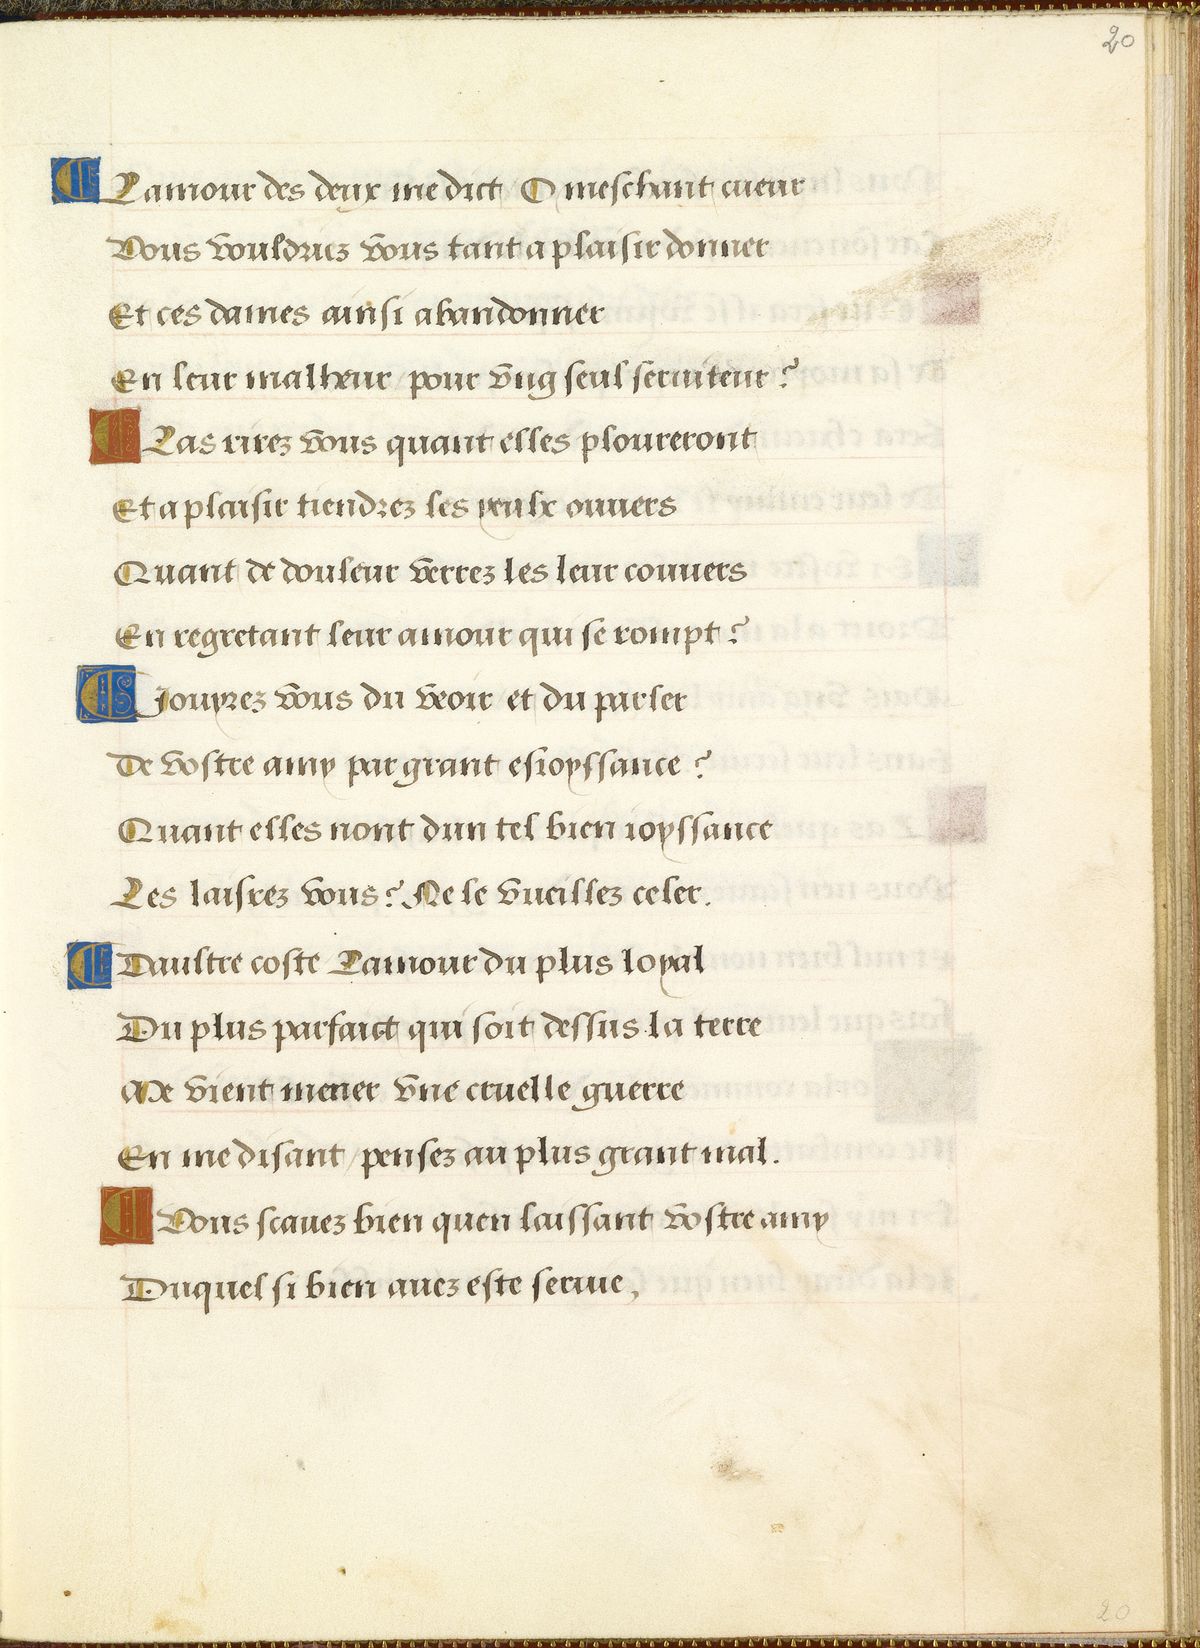 20
Lamour des deux me dict O meschant cueur
Vous vouldriez vous tant a plaisir donner
Et ces dames ainsi abandonner
En leur malheur pour vng seul seruiteur?
Las rirez vous quant elles ploureront
Et a plaisir tiendrez les yeulx ouuers
Quant de douleur verrez les leur couuers
En regretant leur amour qui se rompt?
Jouyrez vous du veoir et du parler
De vostre amy par grant esioyssance?
Quant elles nont dun tel bien ioyssance
Les laisrez vous? Ne le vueillez celer.
Daultre coste Lamour du plus loyal
Du plus parfaict qui soit dessus la terre
Me vient mener vne cruelle guerre
En me disant / pensez au plus grant mal.
Vous scauez bien quen laissant vostre amy
Duquel si bien auez este seruie,
20